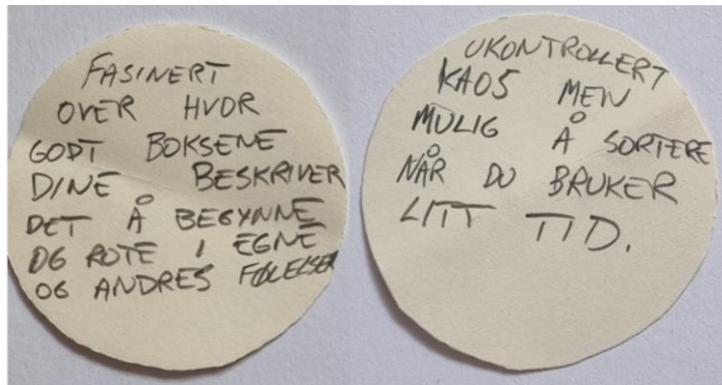 FASINERT
OVER HVOR
GODT BOKSENE
DINE BESKRIVER
DET Å BEGYNNE
OG ROTE I EGNE
OG ANDRES FØLELSER
UKONTROLLERT
KAOS MEN
MULIG Å SORTERE
NÅR DU BRUKER
LITT TID.